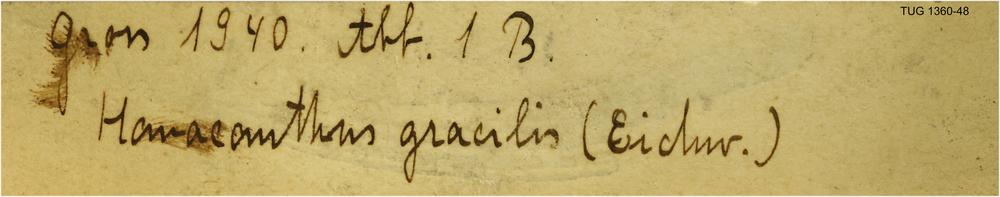 TUG 1360-48
Gross 1940. Abb. 1 B.
Homacanthus gracilis (Eichw.)